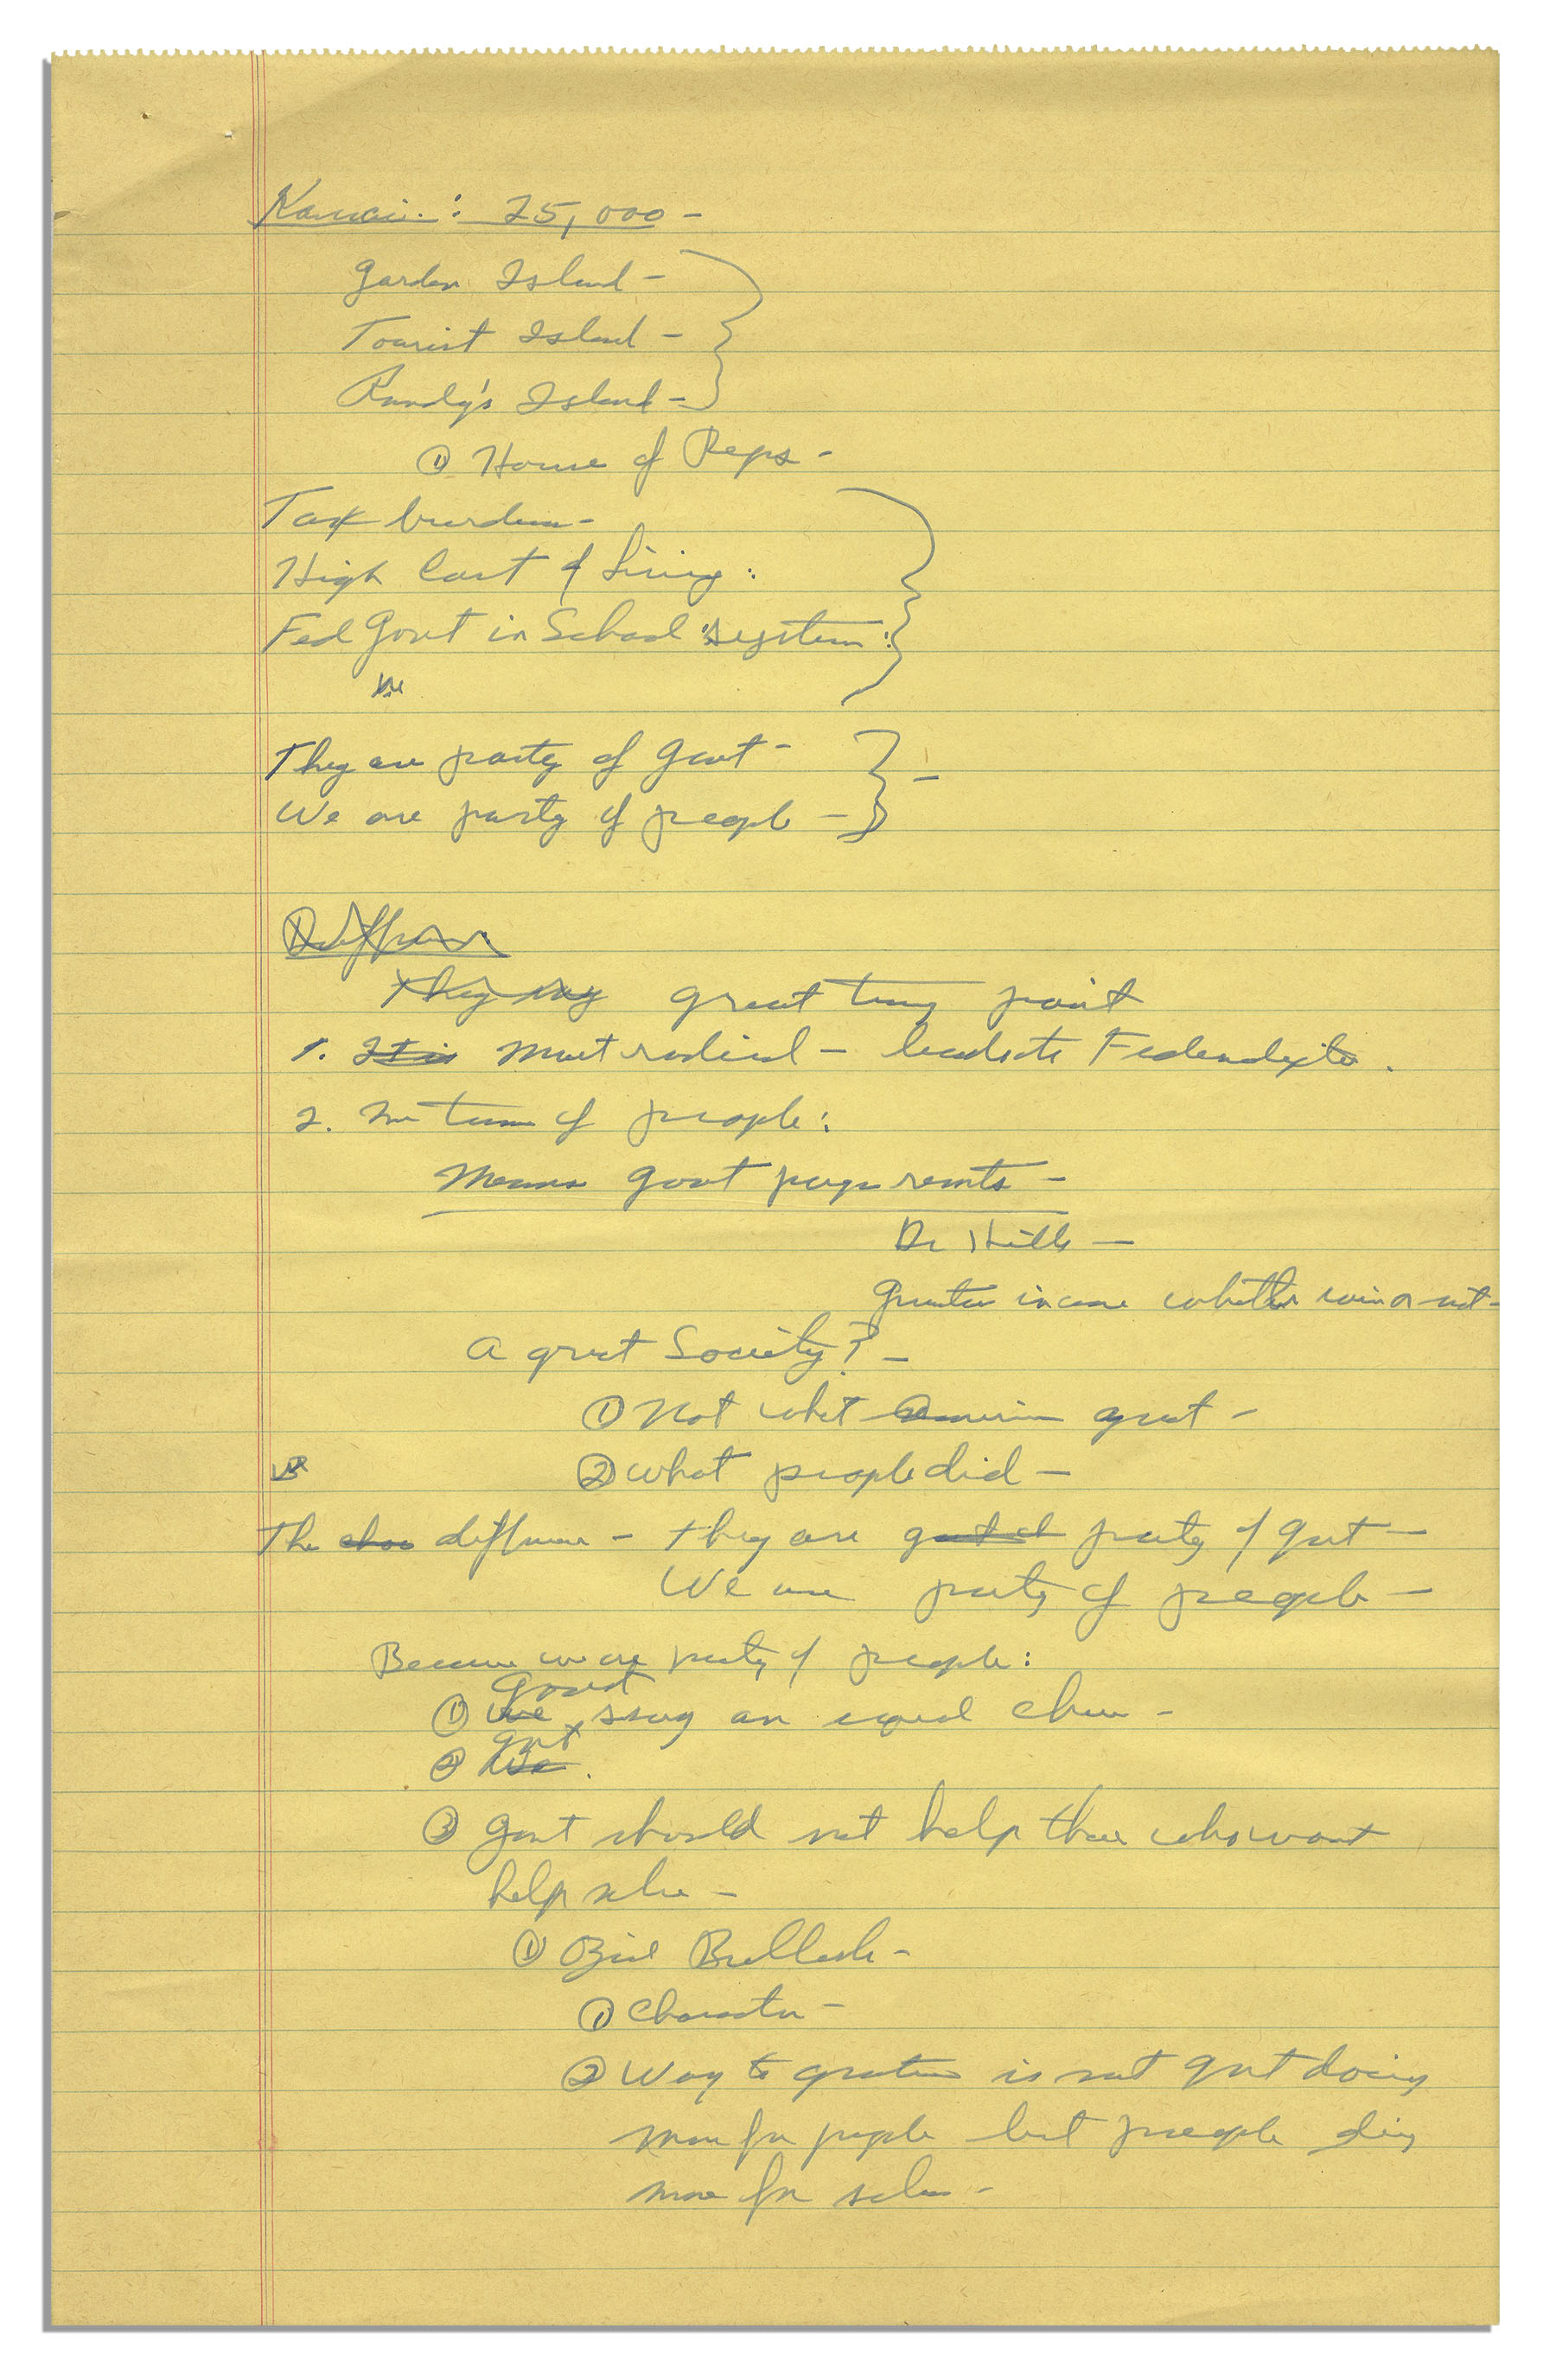 Kauai: 25,000 -
Garden Island -
Tourist Island -
Randy's Island -
① House of Reps -
Tax burden -
High Cost of Living:
Fed Govt in School system:
They are party of Govt -
We are party of people -
Difference
They say great turning point
1. It is Most radical -
2. In terms of people:
Means govt pays rents -
Dr bills -
Guarantee income whether working or not -
A great Society? -
① Not what govt -
② What people did -
The difference - they are party of govt -
We are party of people -
Because we are party of people:
Govt
① We say an equal chance -
govt
② We
③ Govt should not help those who wont
help selves -
①
① Character -
② Way to greatness is not govt doing
more for people but people doing
more for selves -